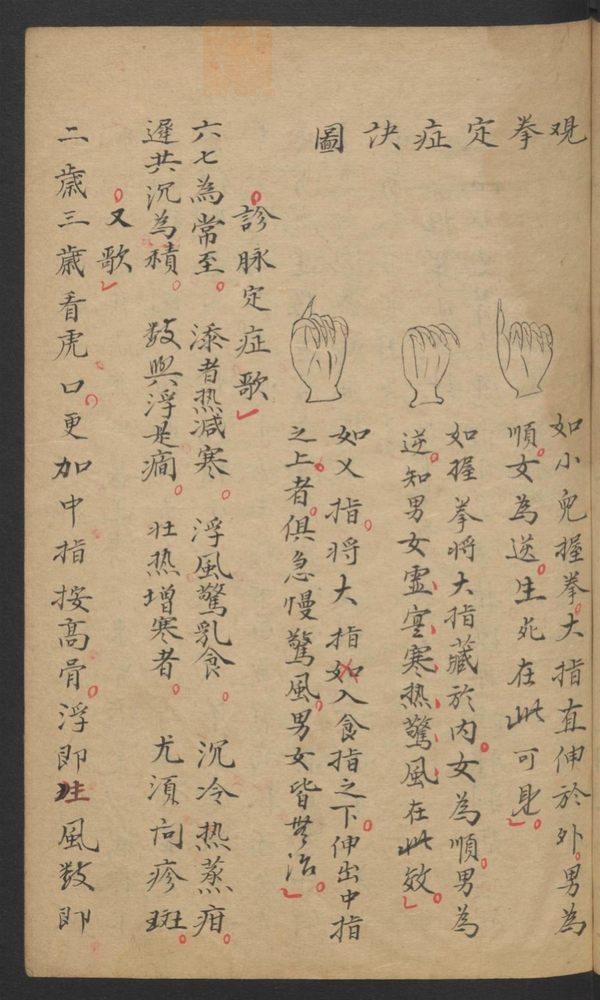 观拳定症诀圖
如小兒握拳。大指直伸於外。男為
順。女為逆。生死在此可見。
如握拳将大指藏於内。女為順。男為
逆。知男女虚実寒热驚風在此效。
如乂指。将大指入食指之下。伸出中指
之上者。俱急慢驚風。男女皆無治。
診脉定症歌
六七為常至。添者热減寒。浮風驚乳食。沉冷热蒸疳。
遲共沉為積。数與浮是癇。壮热增寒者。尤須问疹斑。
又歌
二歲三歲看虎口。更加中指按髙骨。浮即 風数即